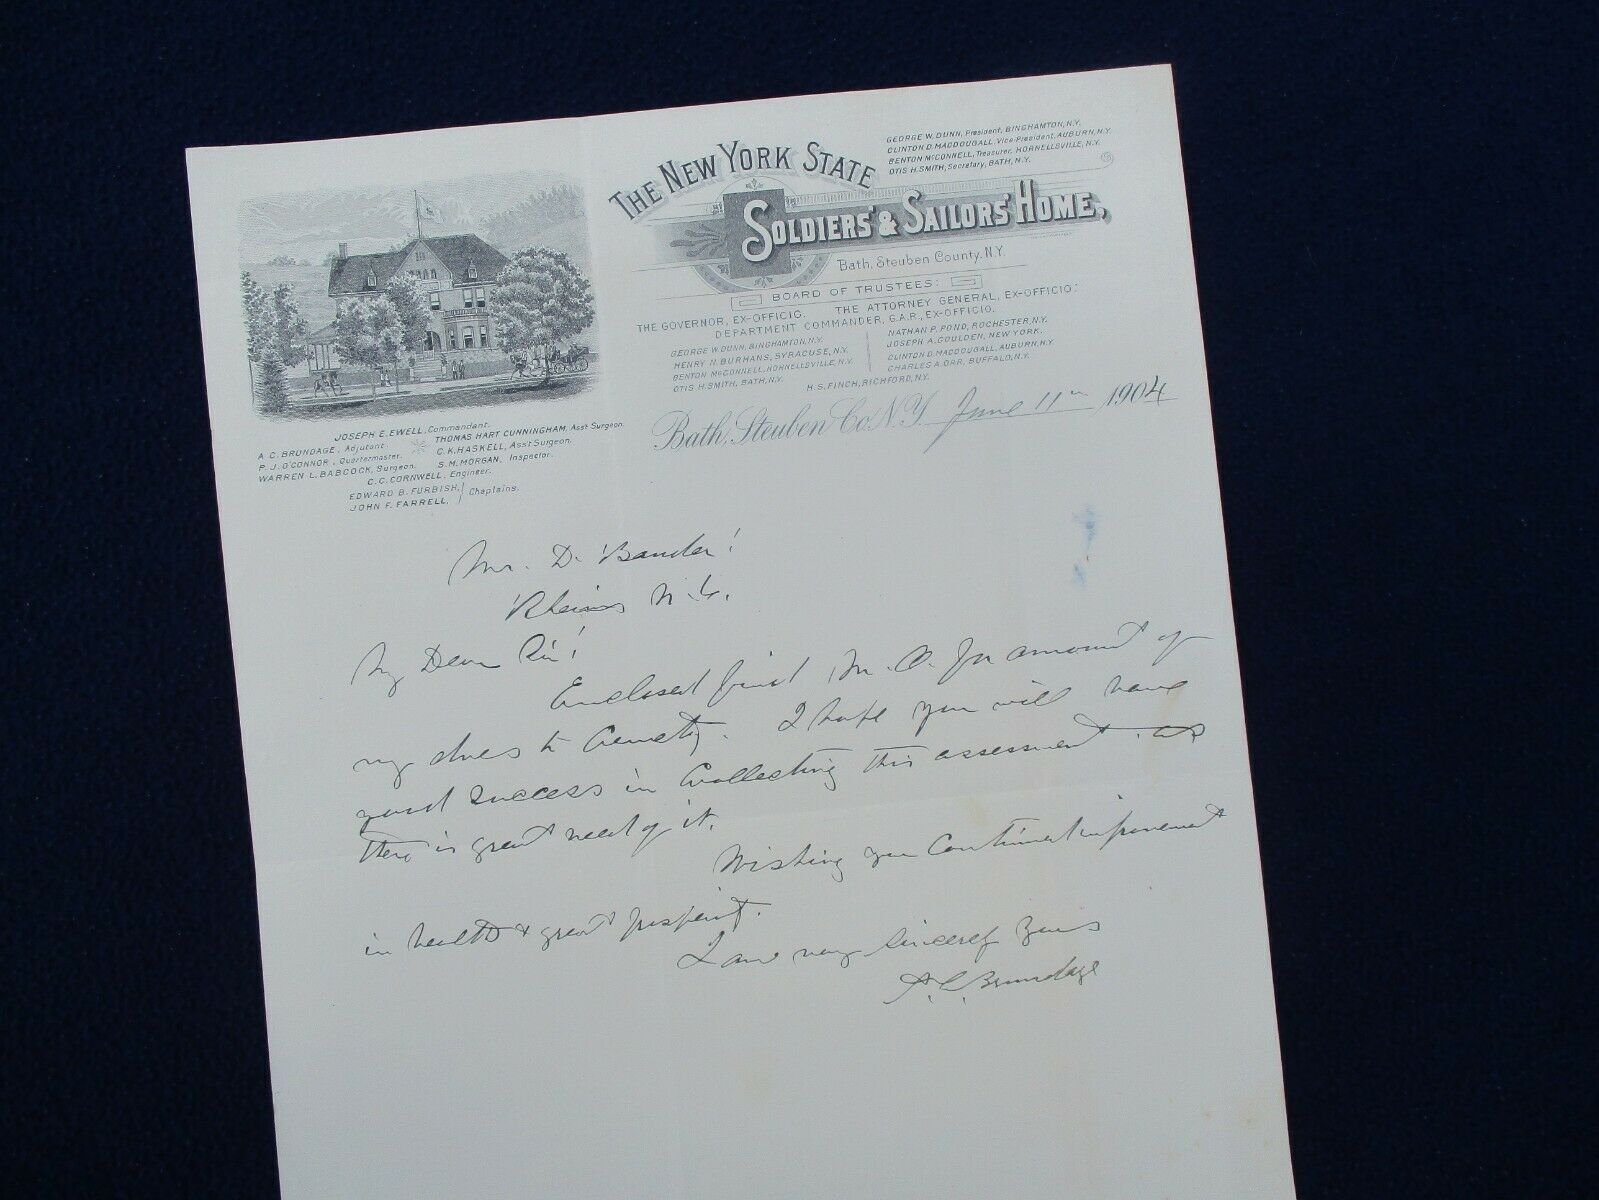 THE NEW YORK STATE
SOLDIERS' & SAILORS' HOME,
Bath, Steuben County, N.Y.
GEORGE W. DUNN, President, BINGHAMTON, N.Y.
CLINTON D. MACDOUGALL, Vice-President, AUBURN, N.Y.
BENTON McCONNELL, Treasurer, HORNELLSVILLE, N.Y.
OTIS H. SMITH, Secretary, BATH, N.Y.
BOARD OF TRUSTEES:
THE GOVERNOR, EX-OFFICIO. THE ATTORNEY GENERAL, EX-OFFICIO.
DEPARTMENT COMMANDER, G.A.R., EX-OFFICIO.
GEORGE W. DUNN, BINGHAMTON, N.Y.
HENRY N. BURHANS, SYRACUSE, N.Y.
BENTON McCONNELL, HORNELLSVILLE, N.Y.
OTIS H. SMITH, BATH, N.Y.
NATHAN P. POND, ROCHESTER, N.Y.
JOSEPH A. GOULDEN, NEW YORK.
CLINTON D. MACDOUGALL, AUBURN, N.Y.
CHARLES A. ORR, BUFFALO, N.Y.
H. S. FINCH, RICHFORD, N.Y.
JOSEPH E. EWELL, Commandant.
A. C. BRUNDAGE, Adjutant.
P. J. O'CONNOR, Quartermaster.
WARREN L. BABCOCK, Surgeon.
THOMAS HART CUNNINGHAM, Asst Surgeon.
C. K. HASKELL, Asst Surgeon.
S. M. MORGAN, Inspector.
C. C. CORNWELL, Engineer.
EDWARD B. FURBISH,
JOHN F. FARRELL,
Chaplains.
Bath, Steuben Co. N.Y. June 11th 1904
Mr. D. Bauder!
Rheims N.Y.
My Dear Sir!
Enclosed find M.O. for amount of
my dues to Cemetry. I hope you will have
good success in Collecting this assessment as
there is great need of it.
Wishing you Continued improvement
in health & great prosperity.
I am very Sincerely Yours
A. C. Brundage